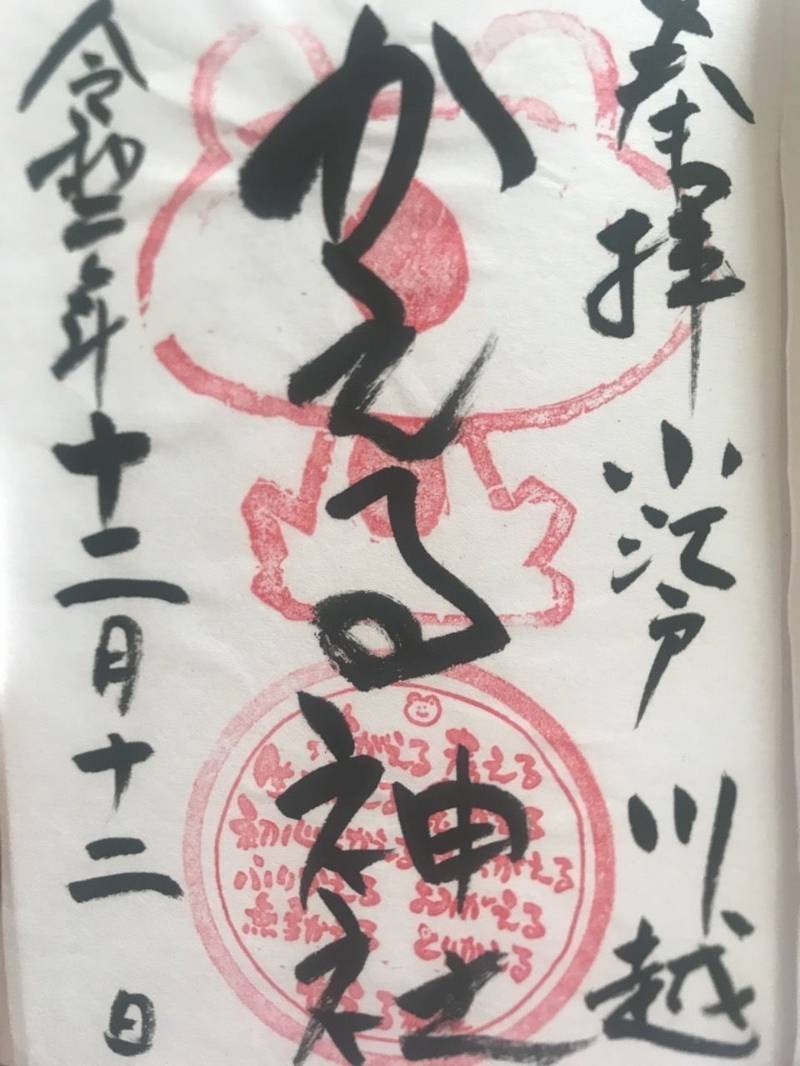 奉拝 小江戸 川越
かえる神社
令和二年十二月十二日
考える
初心
ふりかえる
無事かえる
よみがえる
とりかえる